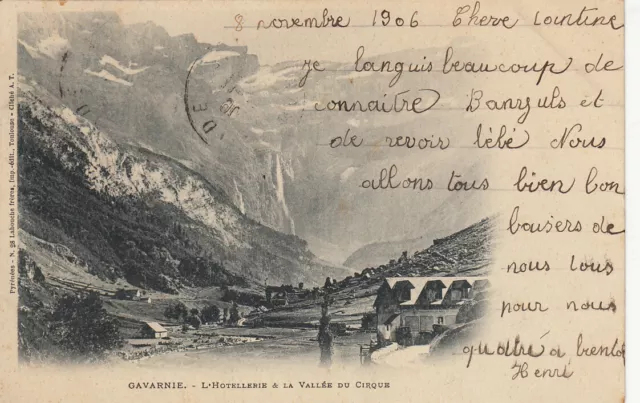 8 novembre 1906 Chere Lointine
je languis beaucoup de
connaitre Banyuls et
de revoir bébé Nous
allons tous bien bon
baisers de
nous tous
pour nous
quatre a bientot
Henri
GAVARNIE. - L'HOTELLERIE & LA VALLÉE DU CIRQUE
Pyrénées - N. 98 Labouche frères, Imp.-édit., Toulouse - Cliché A. T.